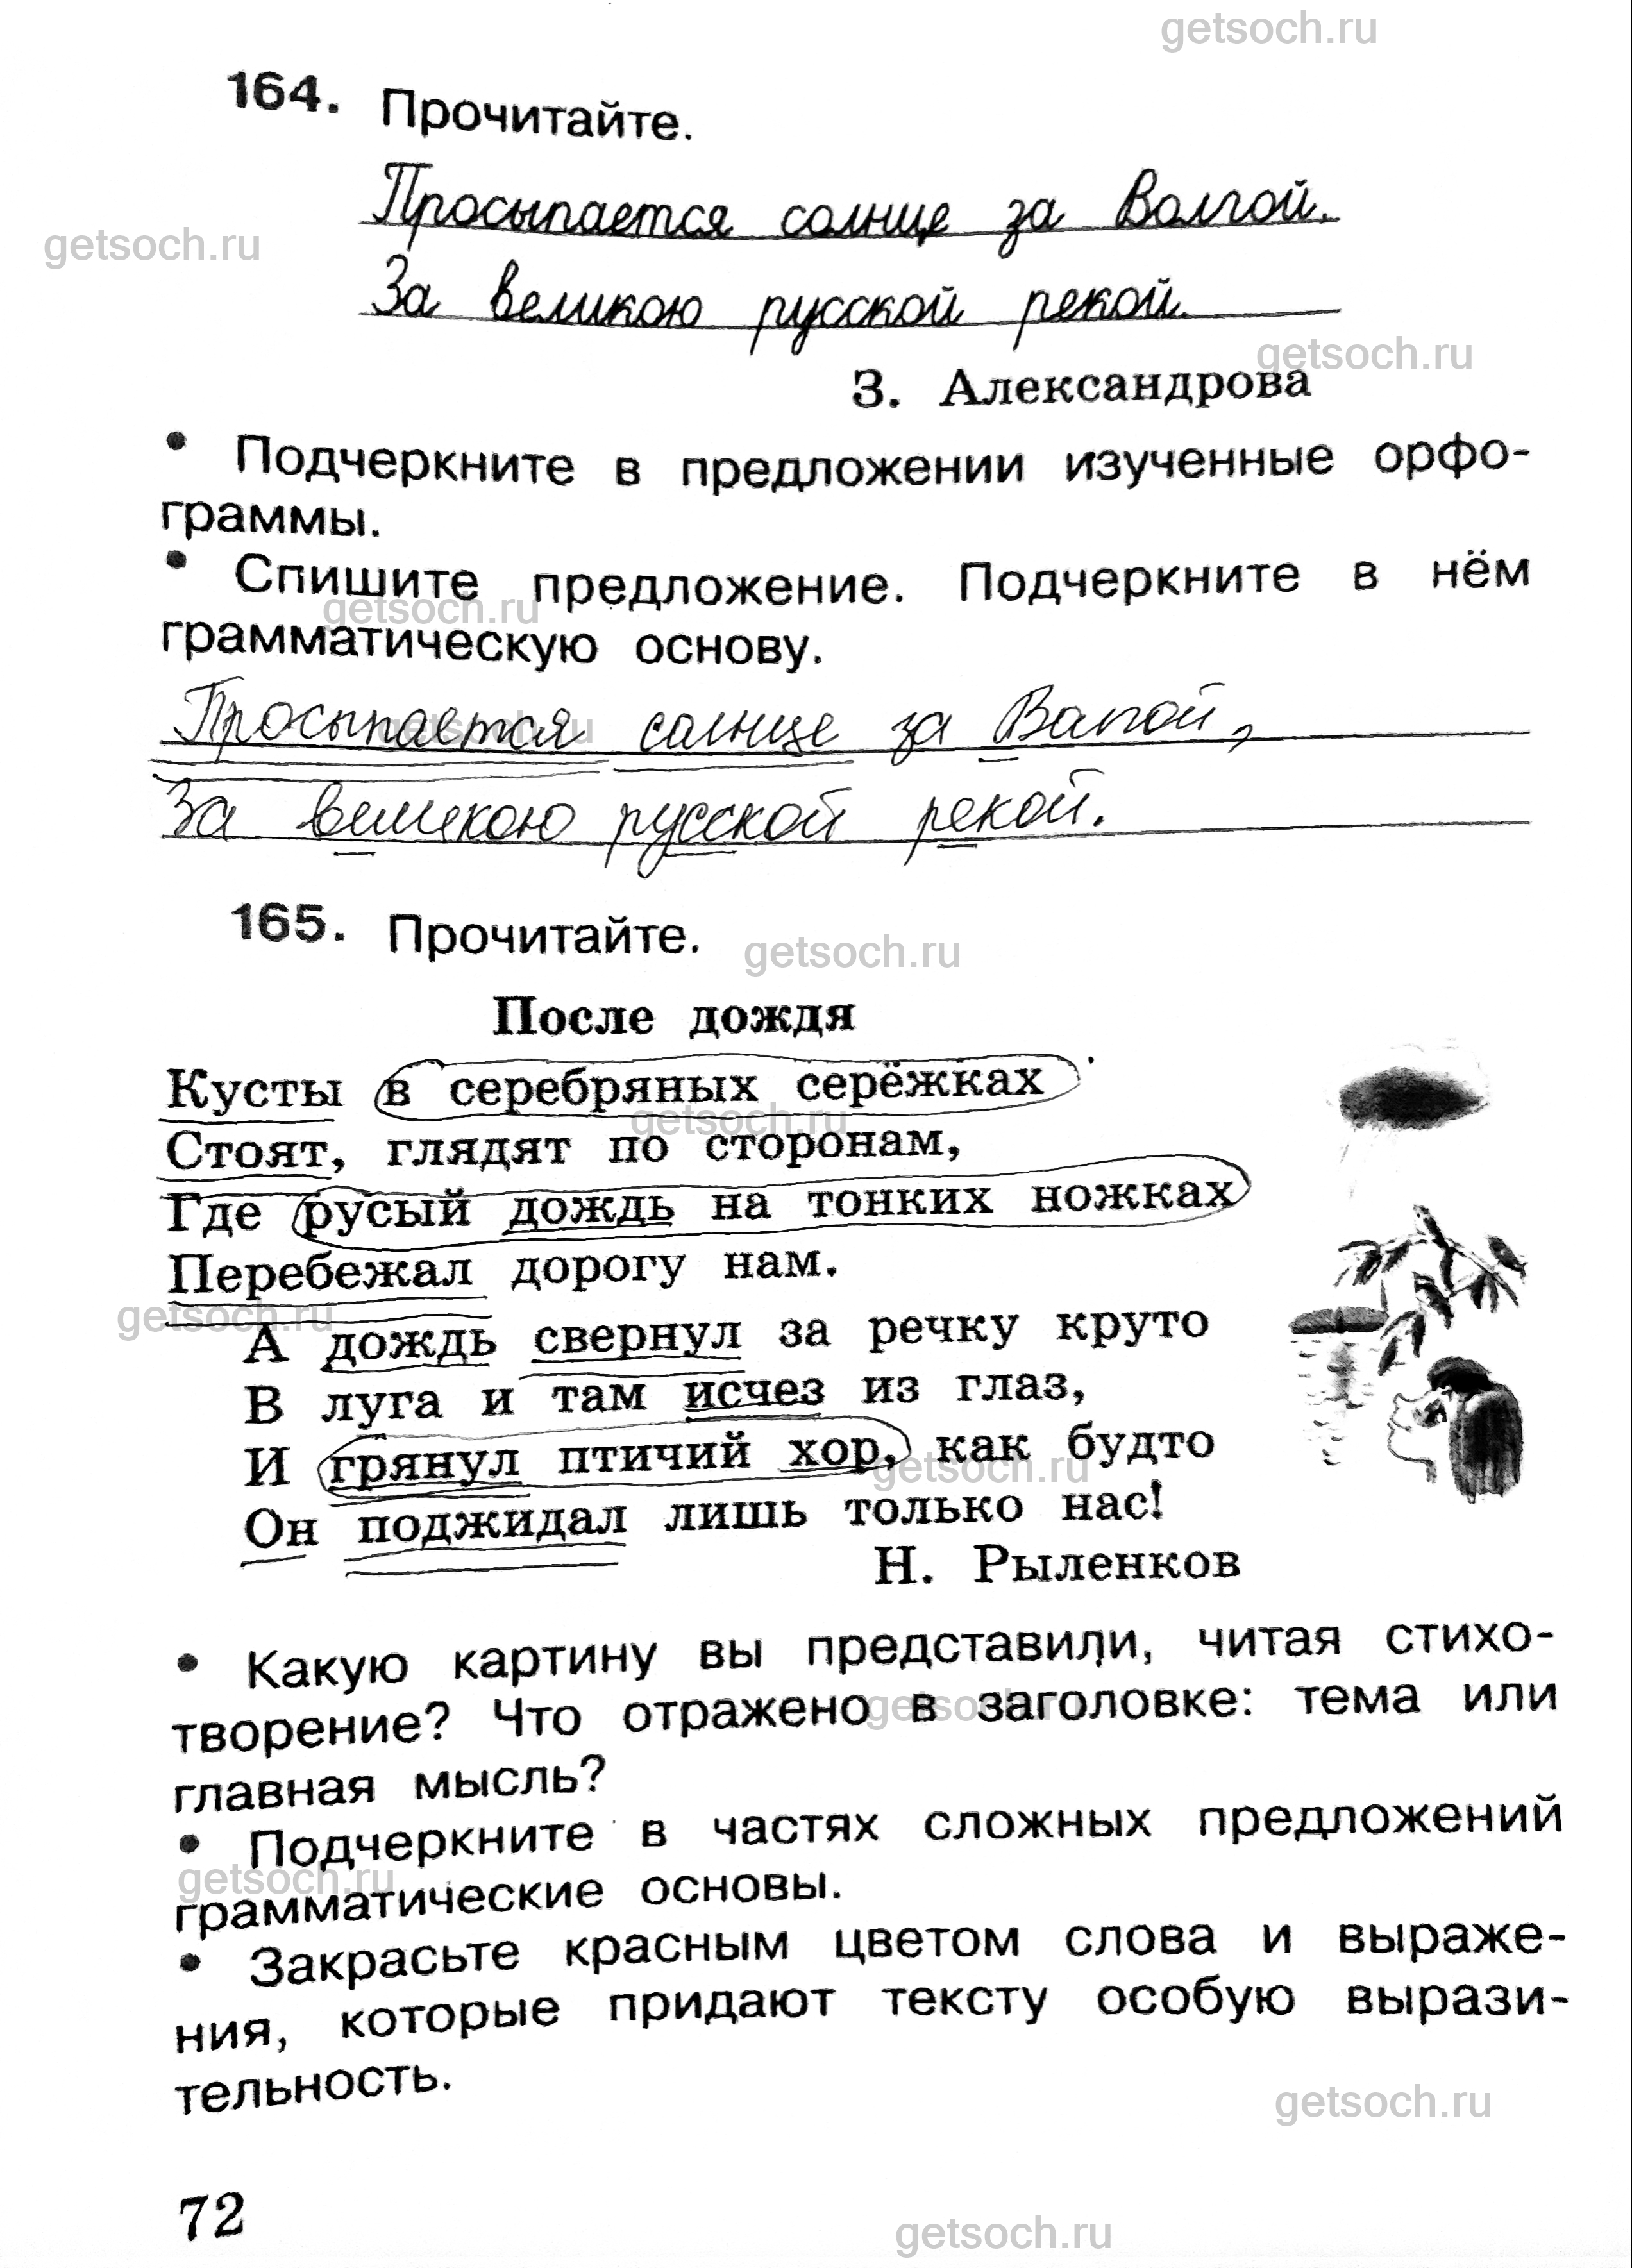 getsoch.ru
164. Прочитайте.
Просыпается солнце за Волгой.
getsoch.ru
За великою русской рекой.
getsoch.ru
З. Александрова
• Подчеркните в предложении изученные орфо-
граммы.
• Спишите предложение. Подчеркните в нём
getsoch.ru
грамматическую основу.
Просыпается солнце за Волгой,
getsoch.ru
За великою русской рекой.
165. Прочитайте.
getsoch.ru
После дождя
Кусты в серебряных серёжках
getsoch.ru
Стоят, глядят по сторонам,
Где русый дождь на тонких ножках
Перебежал дорогу нам.
getsoch.ru
А дождь свернул за речку круто
В луга и там исчез из глаз,
И грянул птичий хор, как будто
getsoch.ru
Он поджидал лишь только нас!
Н. Рыленков
• Какую картину вы представили, читая стихо-
творение? Что отражено в заголовке: тема или
getsoch.ru
главная мысль?
• Подчеркните в частях сложных предложений
getsoch.ru
грамматические основы.
• Закрасьте красным цветом слова и выраже-
ния, которые придают тексту особую вырази-
тельность.
getsoch.ru
72
getsoch.ru